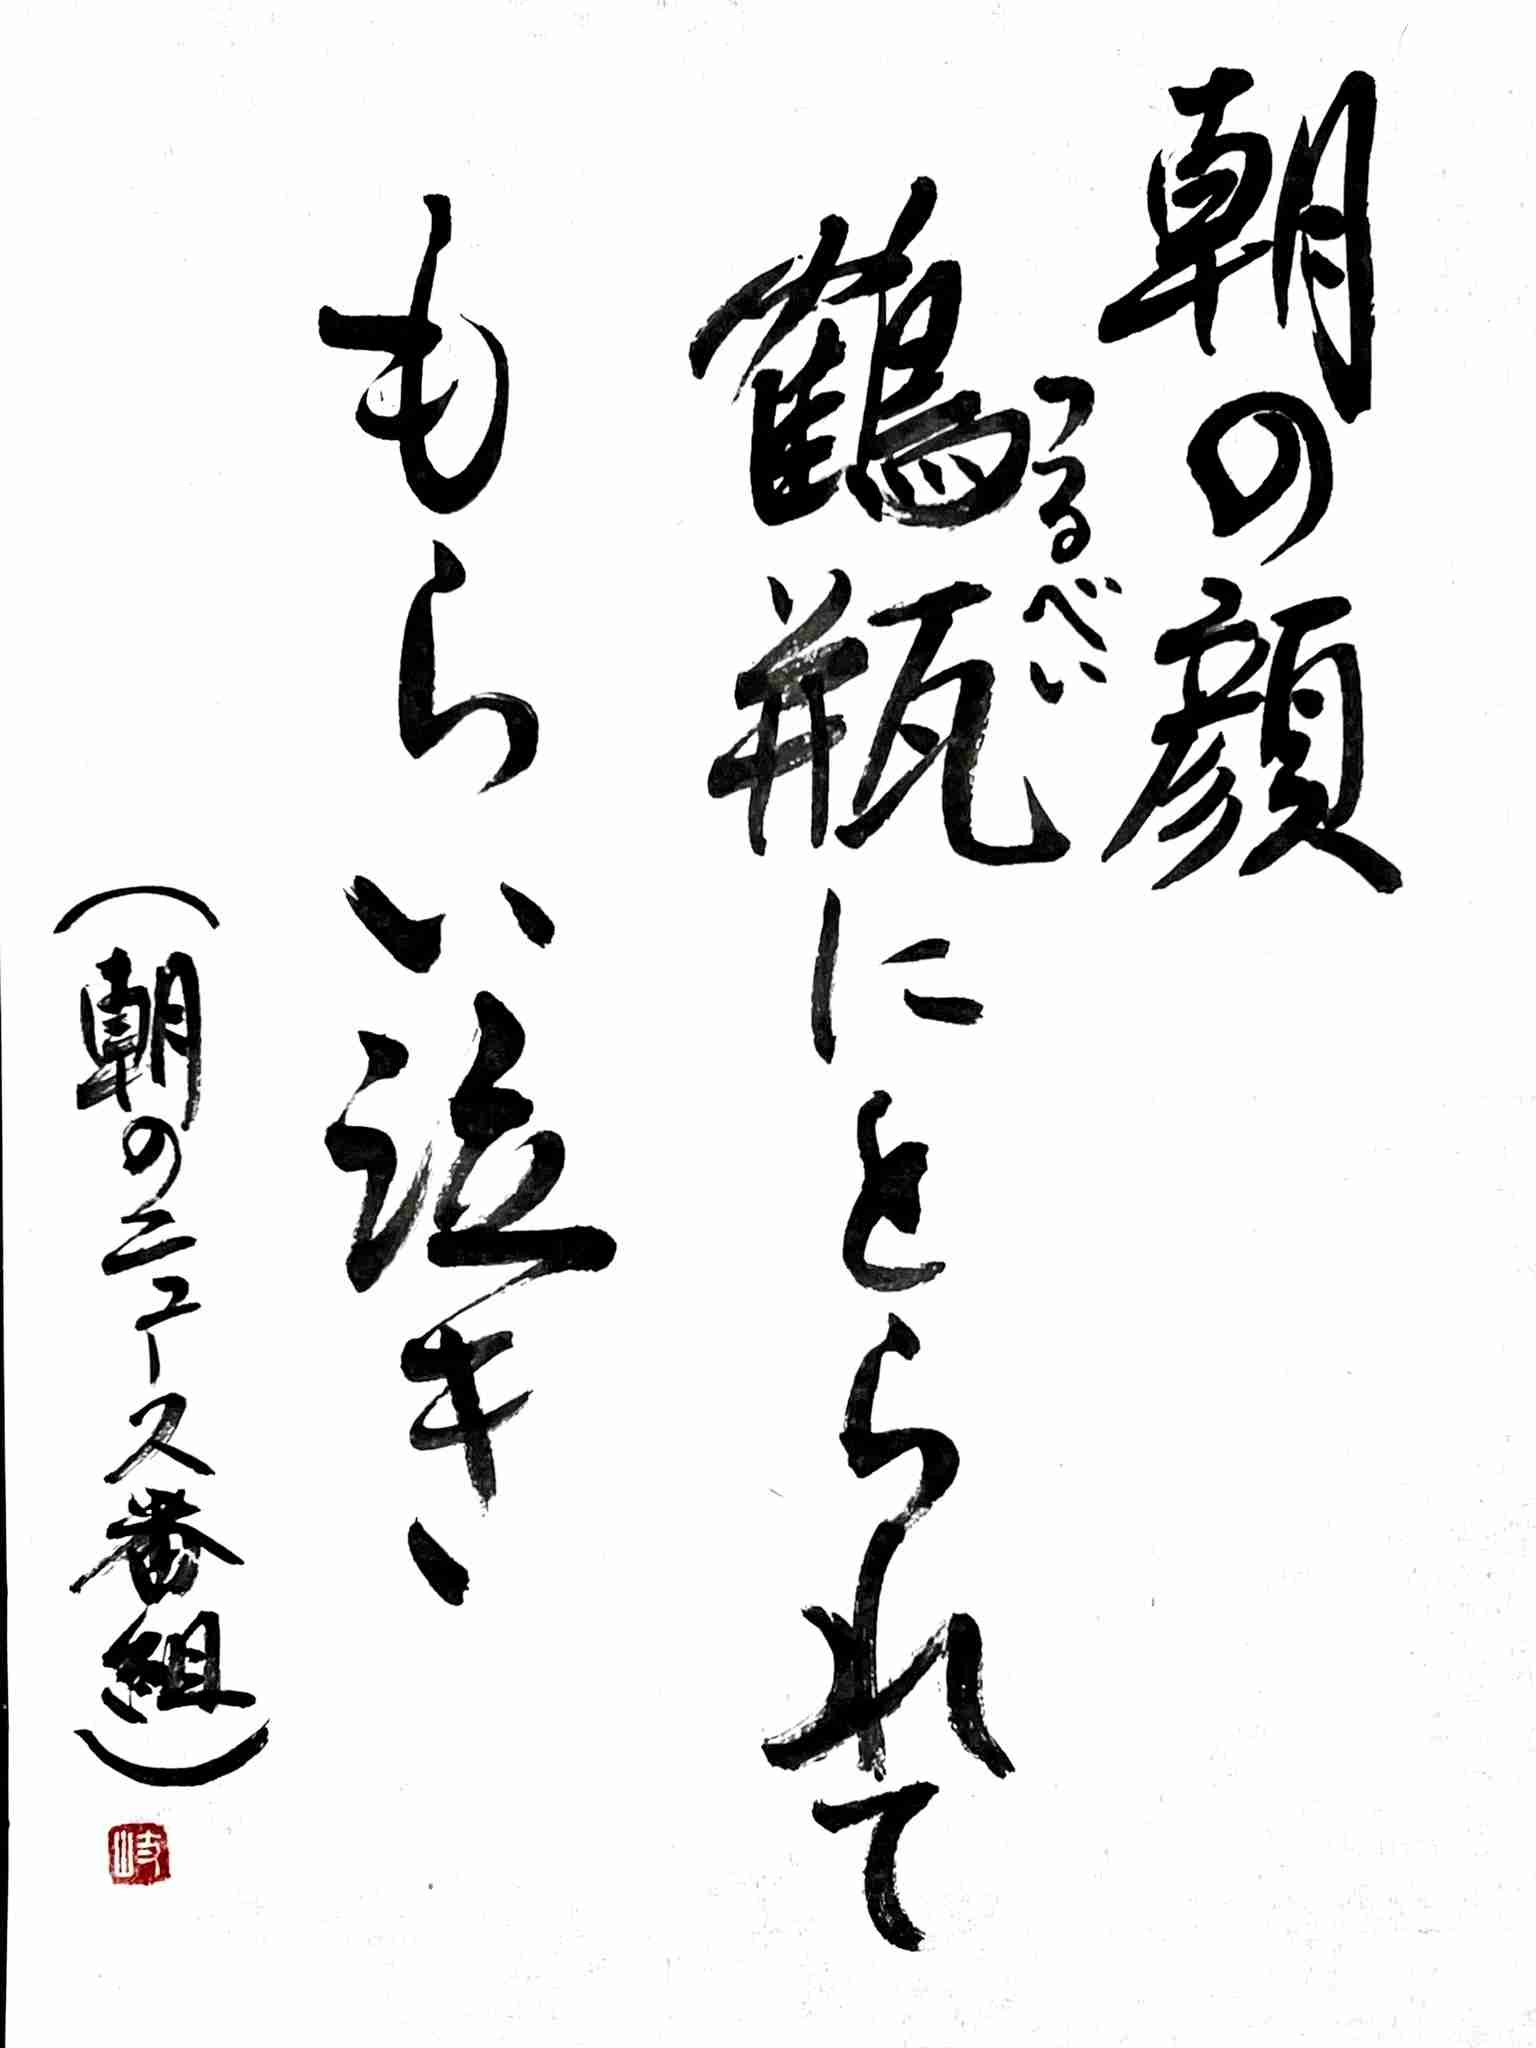 朝の顔
鶴瓶にとられて
つるべい
もらい泣き
(朝のニュース番組)
岐